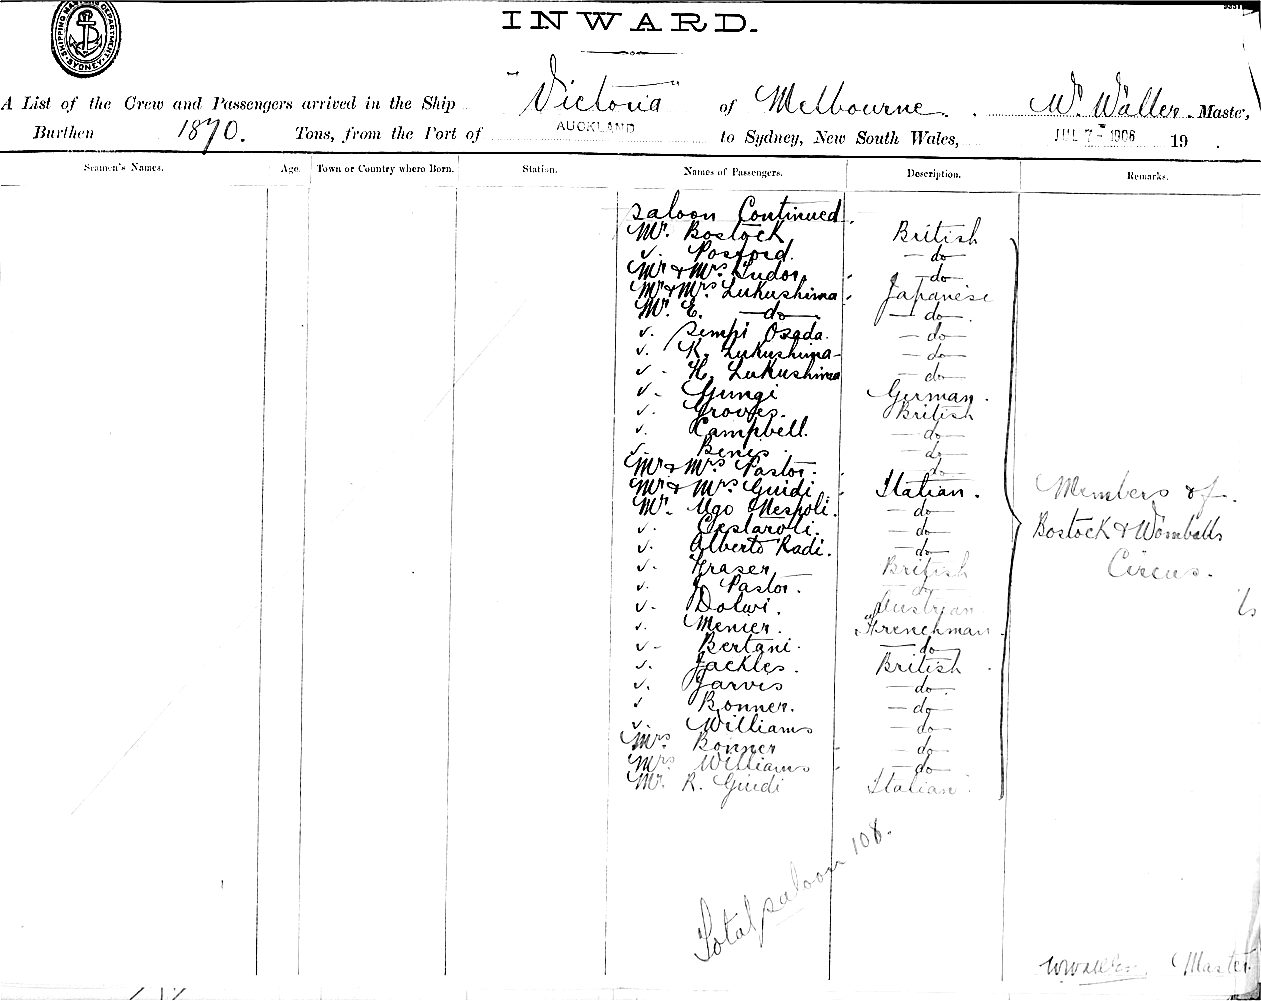 SHIPPING MASTERS DEPARTMENT SYDNEY
INWARD.
A List of the Crew and Passengers arrived in the Ship "Victoria" of Melbourne. W. Waller. Maste,
Burthen 1870. Tons, from the Port of AUCKLAND to Sydney, New South Wales, JUL 7 - 1906 19 .
Seamen's Names. Age. Town or Country where Born. Station. Names of Passengers. Description. Remarks.
Saloon Continued.
Mr. Bostock British
v. Posford. do
Mr & Mrs Tudor. do
Mr & Mrs Lukushima Japanese
Mr. E. do do
v. Sempi Osada. do
v. K. Lukushima do
v. H. Lukushima do
v. Gungi German.
v. Groves. British
v. Campbell. do
v. Benis do
Mr & Mrs Pastor. do
Mr & Mrs Guidi Italian.
Mr. Ugo Nespoli. do
v. Cestaroli. do
v. Alberto Radi. do
v. Fraser British
v. J. Pastor. do
v. Dolwi. Austrian
v. Menier. Frenchman.
v. Bertani. do
v. Jackles. British
v. Jarvis do
v Bonner. do
v. Williams do
Mrs Bonner do
Mrs Williams do
Mr. R. Guidi Italian
Members of
Bostock & Womballs
Circus.
Total saloon 108.
W Waller. Master